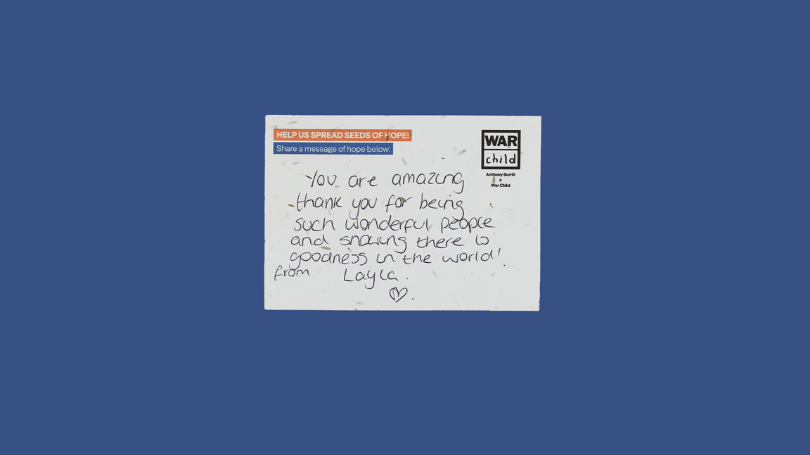 HELP US SPREAD SEEDS OF HOPE!
Share a message of hope below:
WAR
child
Anthony Burrill
x
War Child
You are amazing
thank you for being
such wonderful people
and showing there is
goodness in the world!
from Layla.